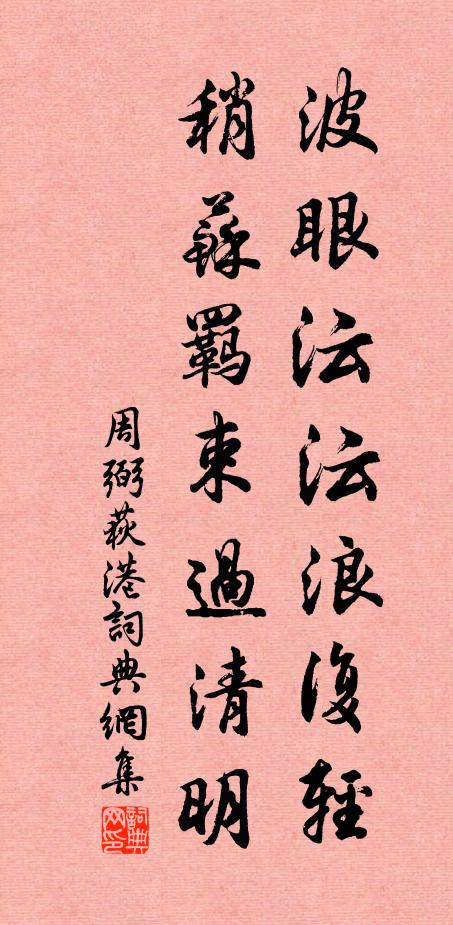 波眼沄沄浪復輕
稍蘇羈束過清明
周弼荻港詞典網集
詞典网印